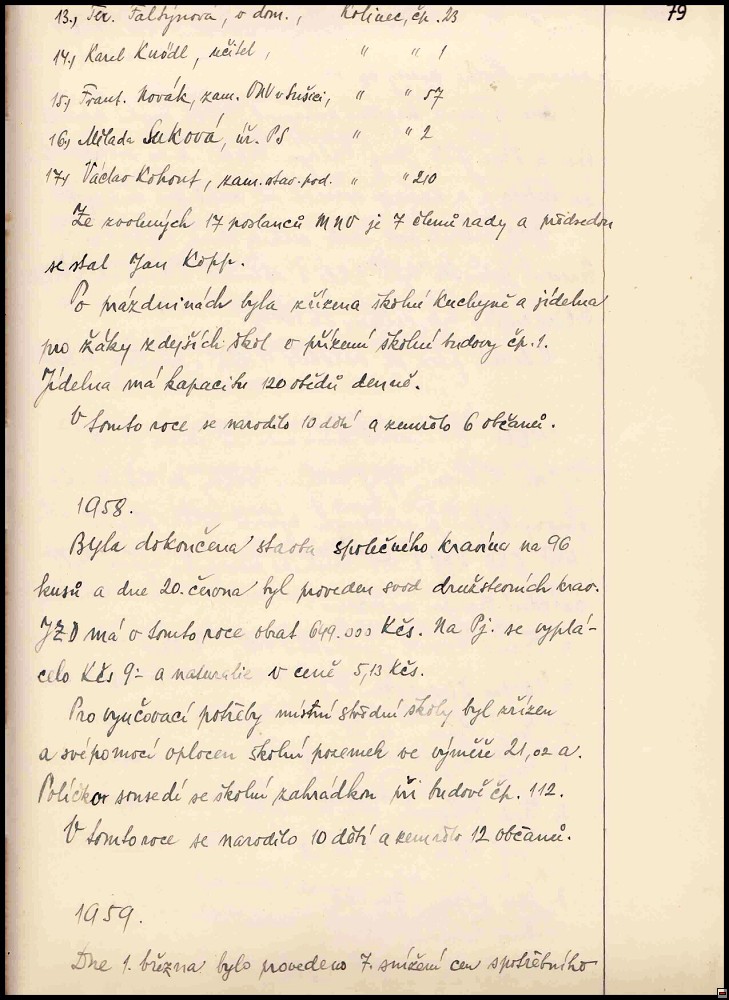 79
13., Ter. Faltýnová, v dom., Kolinec, čp. 23
14., Karel Knödl, učitel, " " 1
15., Frant. Novák, zam. ONV v Sušici, " " 57
16., Milada Suková, úř. PS " " 2
17., Václav Kohout, zam. stav. pod. " " 210
Ze zvolených 17 poslanců MNV je 7 členů rady a předsedou
se stal Jan Köpp.
Po prázdninách byla zřízena školní kuchyně a jídelna
pro žáky zdejších škol v přízemí školní budovy čp. 1.
Jídelna má kapacitu 120 obědů denně.
V tomto roce se narodilo 10 dětí a zemřelo 6 občanů.
1958.
Byla dokončena stavba společného kravína na 96
kusů a dne 20. června byl proveden svod družstevních krav.
JZD má v tomto roce obrat 649.000 Kčs. Na Pj. se vyplá-
celo Kčs 9·- a naturalie v ceně 5,13 Kčs.
Pro vyučovací potřeby místní střední školy byl zřízen
a svépomocí oplocen školní pozemek ve výměře 21,02 a.
Políčko sousedí se školní zahrádkou při budově čp. 112.
V tomto roce se narodilo 10 dětí a zemřelo 12 občanů.
1959.
Dne 1. března bylo provedeno 7. snížení cen spotřebního